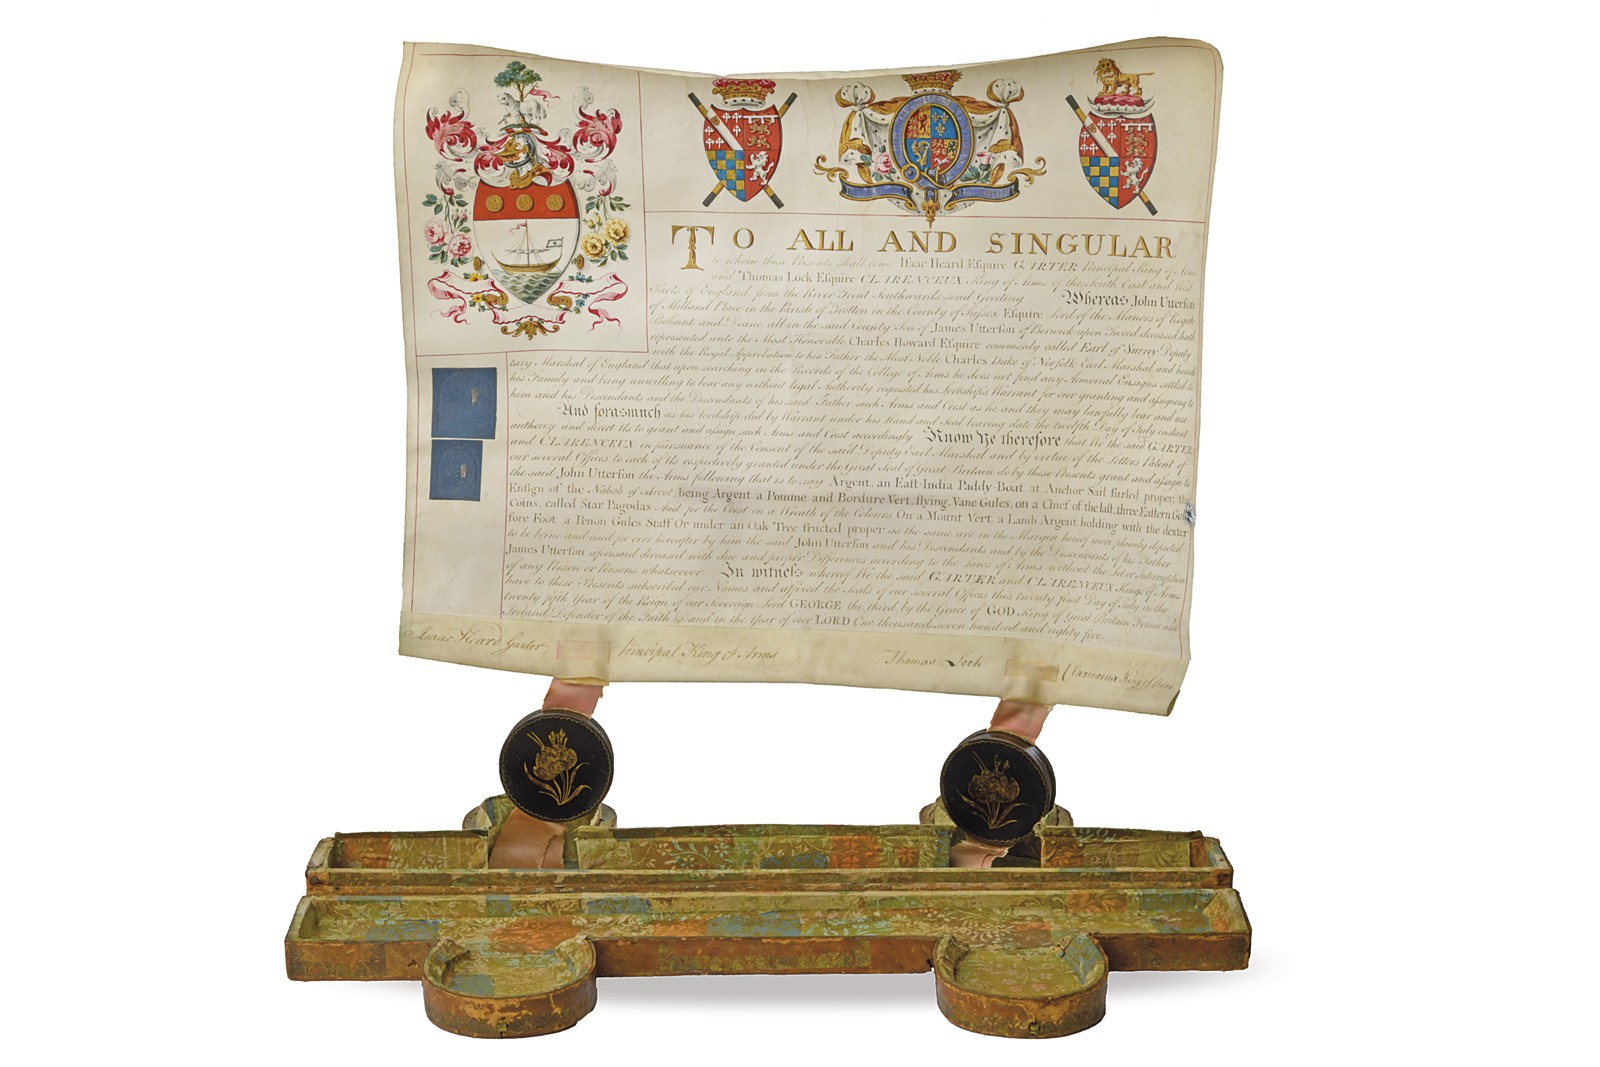 TO ALL AND SINGULAR
to whom these Presents shall come Isaac Heard Esquire GARTER Principal King of Arms
and Thomas Lock Esquire CLARENCEUX King of Arms of the South East and West
Parts of England from the River Trent Southwards send Greeting Whereas John Utterson
of Milland Place in the Parish of Trotton in the County of Sussex Esquire Lord of the Manors of Rogate
Bohunt and Deane all in the said County Son of James Utterson of Berwick upon Tweed deceased hath
represented unto the Most Honorable Charles Howard Esquire commonly called Earl of Surrey Deputy
with the Royal Approbation to his Father the Most Noble Charles Duke of Norfolk Earl Marshal and heredi
tary Marshal of England that upon searching in the Records of the College of Arms he does not find any Armorial Ensigns settled in
his Family and being unwilling to bear any without legal Authority requested his Lordship's Warrant for our granting and assigning to
him and his Descendants and the Descendants of his said Father such Arms and Crest as he and they may lawfully bear and use
And forasmuch as his Lordship did by Warrant under his Hand and Seal bearing date the twelfth Day of July instant
authorize and direct Us to grant and assign such Arms and Crest accordingly Know Ye therefore that We the said GARTER
and CLARENCEUX in pursuance of the Consent of the said Deputy Earl Marshal and by virtue of the Letters Patent of
our several Offices to each of Us respectively granted under the Great Seal of Great Britain do by these Presents grant and assign to
the said John Utterson the Arms following that is to say Argent, an East-India Paddy-Boat at Anchor Sail furled proper, the
Ensign of the Nabob of Arcot, being Argent a Pomme and Bordure Vert, flying, Vane Gules, on a Chief of the last, three Eastern Gold
Coins, called Star Pagodas And for the Crest on a Wreath of the Colours On a Mount Vert a Lamb Argent holding with the dexter
fore Foot a Penon Gules Staff Or under an Oak Tree fructed proper as the same are in the Margin hereof more plainly depicted
to be borne and used for ever hereafter by him the said John Utterson and his Descendants and by the Descendants of his Father
James Utterson aforesaid deceased with due and proper Differences according to the Laws of Arms without the Let or Interruption
of any Person or Persons whatsoever In witness whereof We the said GARTER and CLARENCEUX Kings of Arms
have to these Presents subscribed our Names and affixed the Seals of our several Offices this twenty first Day of July in the
twenty fifth Year of the Reign of our Sovereign Lord GEORGE the third by the Grace of GOD King of Great Britain France and
Ireland Defender of the Faith &c and in the Year of our LORD One thousand seven hundred and eighty five.
Isaac Heard Garter Principal King of Arms
Thomas Lock Clarenceux King of Arms